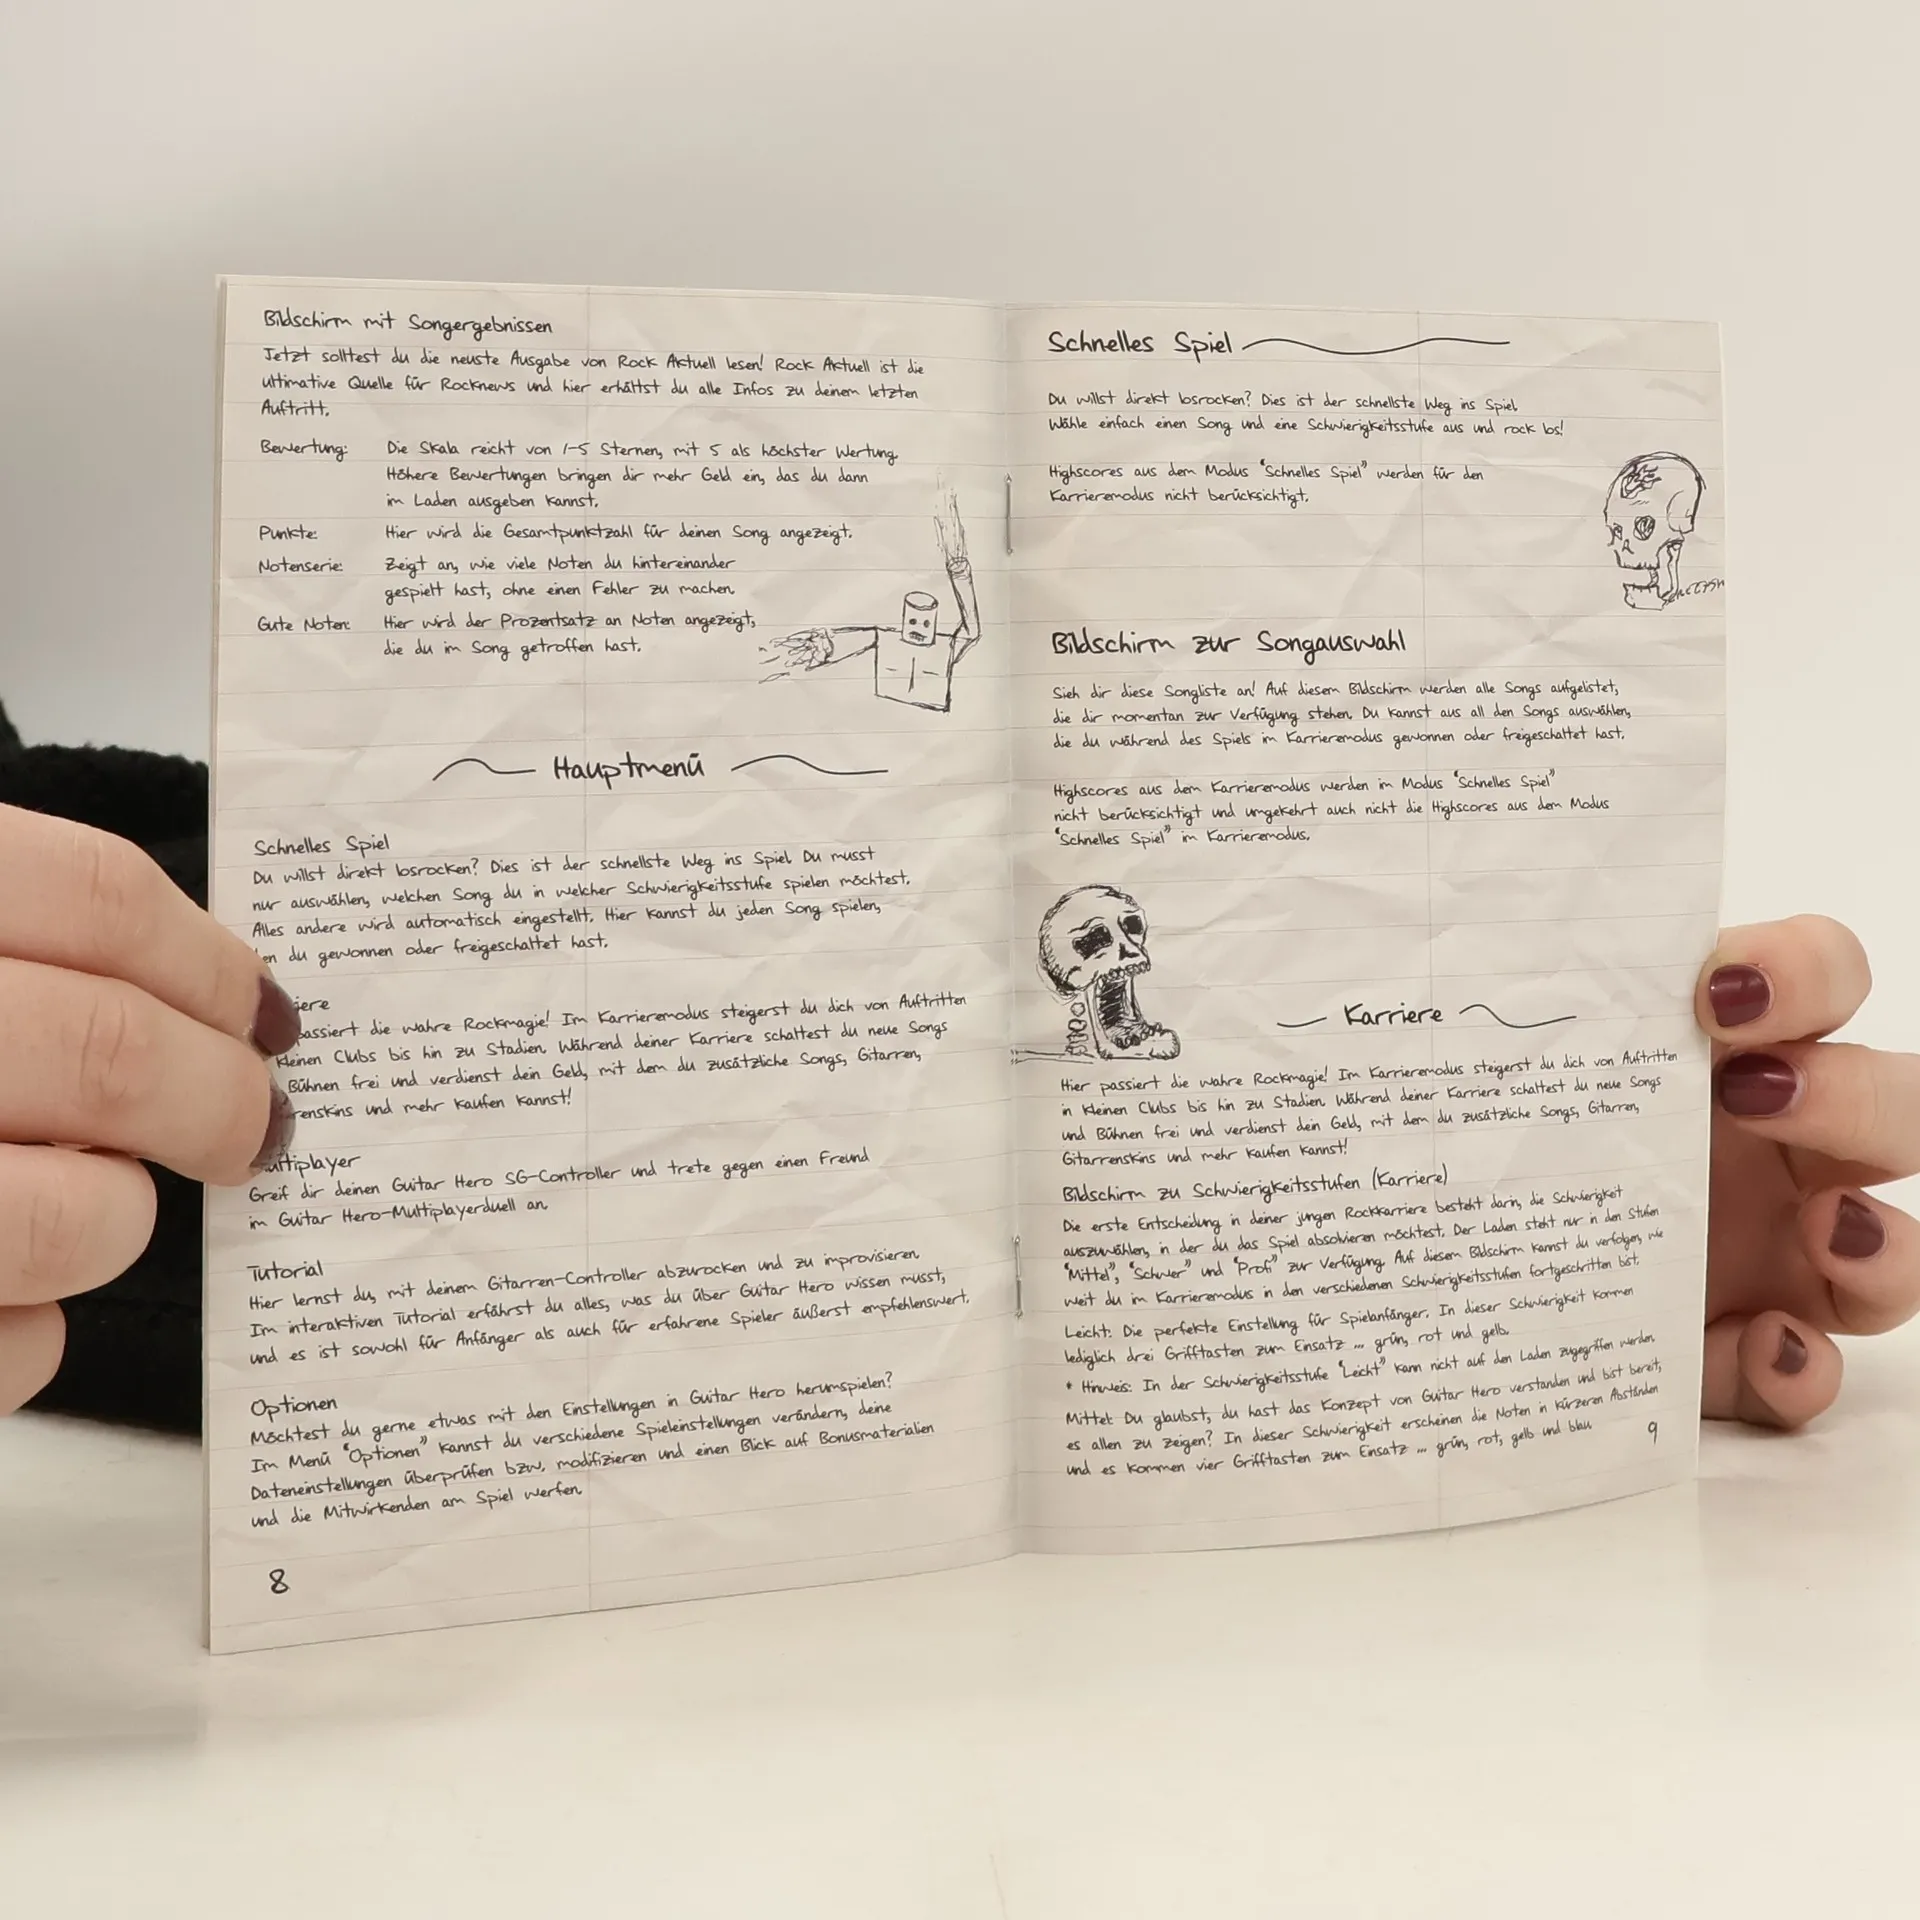 Bildschirm mit Songergebnissen
Jetzt solltest du die neuste Ausgabe von Rock Aktuell lesen! Rock Aktuell ist die
ultimative Quelle für Rocknews und hier erhältst du alle Infos zu deinem letzten
Auftritt.
Bewertung: Die Skala reicht von 1-5 Sternen, mit 5 als höchster Wertung.
Höhere Bewertungen bringen dir mehr Geld ein, das du dann
im Laden ausgeben kannst.
Punkte: Hier wird die Gesamtpunktzahl für deinen Song angezeigt.
Notenserie: Zeigt an, wie viele Noten du hintereinander
gespielt hast, ohne einen Fehler zu machen.
Gute Noten: Hier wird der Prozentsatz an Noten angezeigt,
die du im Song getroffen hast.
Hauptmenü
Schnelles Spiel
Du willst direkt losrocken? Dies ist der schnellste Weg ins Spiel. Du musst
nur auswählen, welchen Song du in welcher Schwierigkeitsstufe spielen möchtest.
Alles andere wird automatisch eingestellt. Hier kannst du jeden Song spielen,
en du gewonnen oder freigeschaltet hast.
iere
passiert die wahre Rockmagie! Im Karrieremodus steigerst du dich von Auftritten
kleinen Clubs bis hin zu Stadien. Während deiner Karriere schaltest du neue Songs
Bühnen frei und verdienst dein Geld, mit dem du zusätzliche Songs, Gitarren,
renskins und mehr kaufen kannst!
ultiplayer
Greif dir deinen Guitar Hero SG-Controller und trete gegen einen Freund
im Guitar Hero-Multiplayerduell an.
Tutorial
Hier lernst du, mit deinem Gitarren-Controller abzurocken und zu improvisieren.
Im interaktiven Tutorial erfährst du alles, was du über Guitar Hero wissen musst,
und es ist sowohl für Anfänger als auch für erfahrene Spieler äußerst empfehlenswert.
Optionen
Möchtest du gerne etwas mit den Einstellungen in Guitar Hero herumspielen?
Im Menü "Optionen" kannst du verschiedene Spieleinstellungen verändern, deine
Dateneinstellungen überprüfen bzw. modifizieren und einen Blick auf Bonusmaterialien
und die Mitwirkenden am Spiel werfen.
8
Schnelles Spiel
Du willst direkt losrocken? Dies ist der schnellste Weg ins Spiel.
Wähle einfach einen Song und eine Schwierigkeitsstufe aus und rock los!
Highscores aus dem Modus "Schnelles Spiel" werden für den
Karrieremodus nicht berücksichtigt.
Bildschirm zur Songauswahl
Sieh dir diese Songliste an! Auf diesem Bildschirm werden alle Songs aufgelistet,
die dir momentan zur Verfügung stehen. Du kannst aus all den Songs auswählen,
die du während des Spiels im Karrieremodus gewonnen oder freigeschaltet hast.
Highscores aus dem Karrieremodus werden im Modus "Schnelles Spiel"
nicht berücksichtigt und umgekehrt auch nicht die Highscores aus dem Modus
"Schnelles Spiel" im Karrieremodus.
Karriere
Hier passiert die wahre Rockmagie! Im Karrieremodus steigerst du dich von Auftritten
in kleinen Clubs bis hin zu Stadien. Während deiner Karriere schaltest du neue Songs
und Bühnen frei und verdienst dein Geld, mit dem du zusätzliche Songs, Gitarren,
Gitarrenskins und mehr kaufen kannst!
Bildschirm zu Schwierigkeitsstufen (Karriere)
Die erste Entscheidung in deiner jungen Rockkarriere besteht darin, die Schwierigkeit
auszuwählen, in der du das Spiel absolvieren möchtest. Der Laden steht nur in den Stufen
"Mittel", "Schwer" und "Profi" zur Verfügung. Auf diesem Bildschirm kannst du verfolgen, wie
weit du im Karrieremodus in den verschiedenen Schwierigkeitsstufen fortgeschritten bist.
Leicht: Die perfekte Einstellung für Spielanfänger. In dieser Schwierigkeit kommen
lediglich drei Grifftasten zum Einsatz ... grün, rot und gelb.
* Hinweis: In der Schwierigkeitsstufe "Leicht" kann nicht auf den Laden zugegriffen werden.
Mittel: Du glaubst, du hast das Konzept von Guitar Hero verstanden und bist bereit,
es allen zu zeigen? In dieser Schwierigkeit erscheinen die Noten in kürzeren Abständen
und es kommen vier Grifftasten zum Einsatz ... grün, rot, gelb und blau.
9